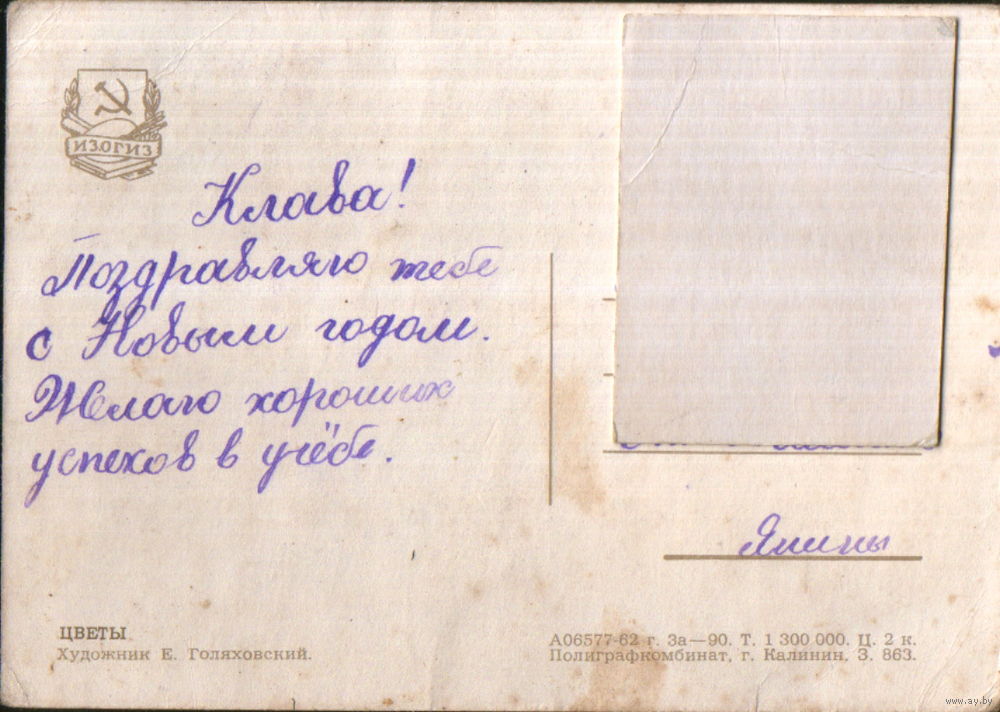 ИЗОГИЗ
Клава!
Поздравляю тебе
с Новым годом.
Желаю хороших
успехов в учёбе.
Янины
ЦВЕТЫ
Художник Е. Голяховский.
А06577-62 г. За—90. Т. 1 300 000. Ц. 2 к.
Полиграфкомбинат, г. Калинин, З. 863.
www.ay.by